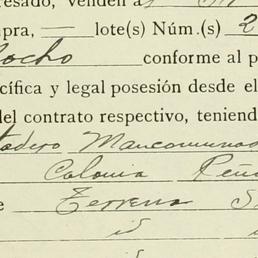 resado, venden a
mpra, — lote(s) Núm.(s) 2
ocho conforme al p
cífica y legal posesión desde el
del contrato respectivo, teniend
tadero Mancomunad
Colonia Peñ
e Terreno S
id
id